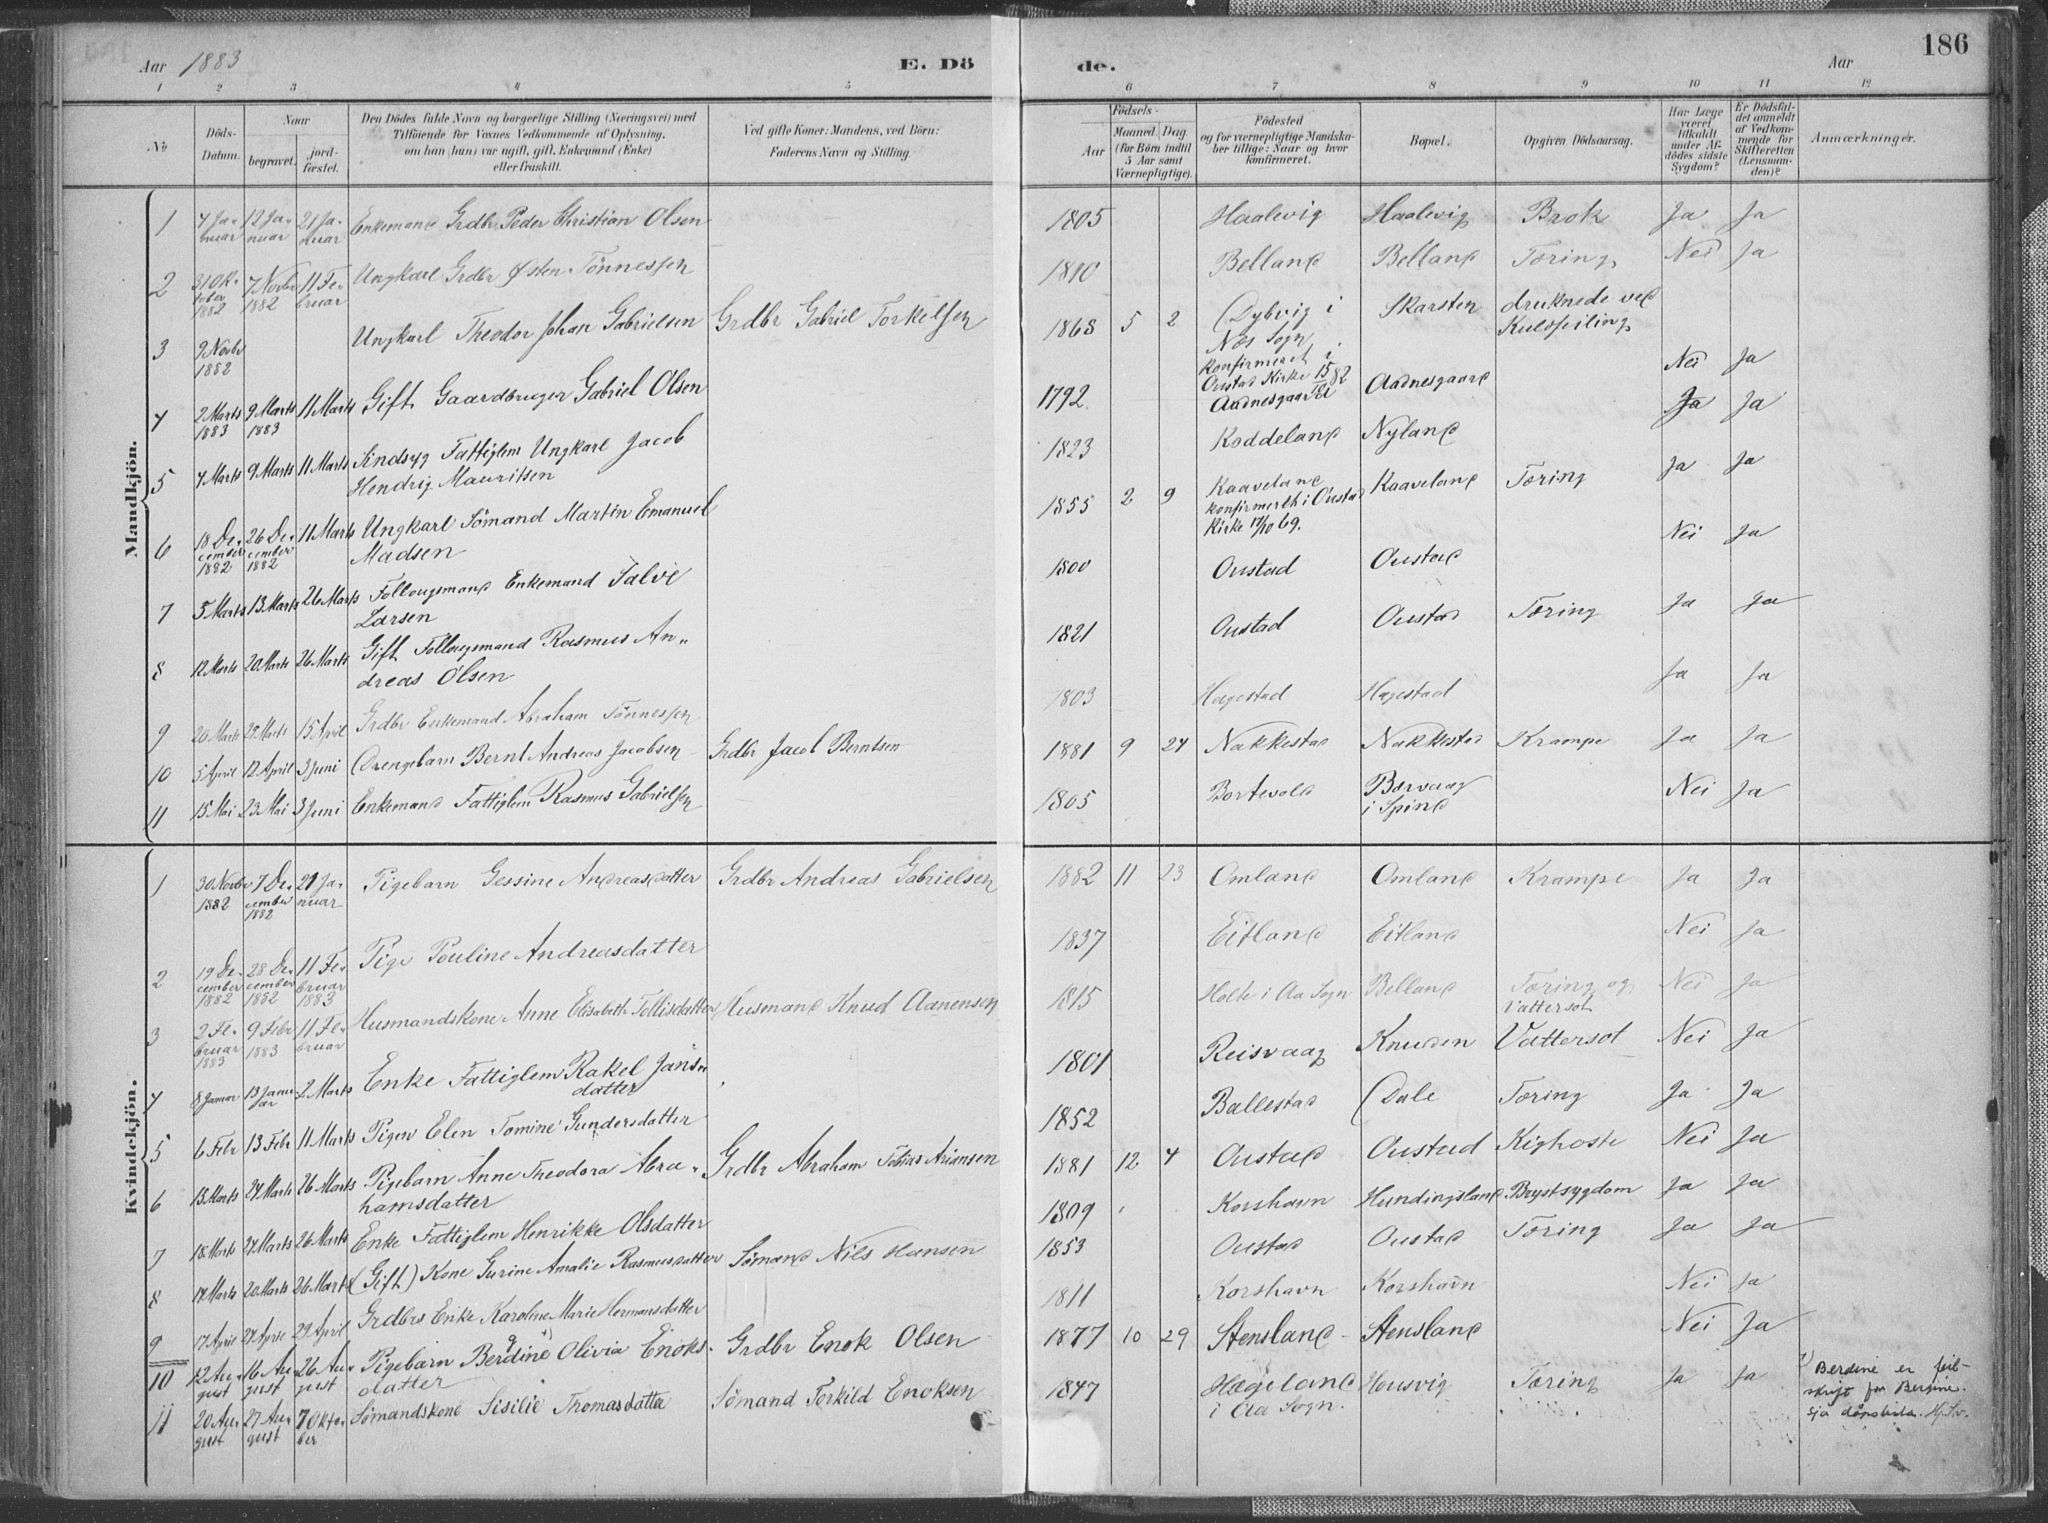 186
Aar 1883 E. Dö de. Aar
1 2 3 4 5 6 7 8 9 10 11 12
No
Döds-Datum.
Naar
begravet.
jord-fæstet.
Den Dödes fulde Navn og borgerlige Stilling (Næringsvei) med
Tilföiende for Voxnes Vedkommende af Oplysning,
om han (hun) var ugift, gift, Enkemand (Enke)
eller fraskilt.
Ved gifte Koner: Mandens, ved Börn:
Faderens Navn og Stilling.
Födsels-
Aar
Maaned. Dag.
(for Börn indtil
5 Aar samt
Værnepligtige).
Födested
og for værnepligtige Mandska-
ber tillige: Naar og hvor
konfirmeret.
Bopæl.
Opgiven Dödsaarsag.
Har Læge
været
tilkaldt
under Af-
dödes sidste
Sygdom?
Er Dödsfal-
det anmeldt
af Vedkom-
mende for
Skifteretten
(Lensman-
den)?
Anmærkninger.
Mandkjön.
1 7 Januar 12 Januar 21 Januar Enkemand Grdbr Peder Christian Olsen 1805 Haalevig Haalevig Brok Ja Ja
2 31 Oktober 1882 7 Novbr 1882 11 Februar Ungkarl Grdbr Østen Tönnessen 1810 Belland Belland Tæring Nei Ja
3 9 Novbr 1882 Ungkarl Theodor Johan Gabrielsen Grdbr Gabriel Torkelsen 1868 5 2 Dybvig i Næs Sogn konfirmeret i Oustad Kirke 15 82 Skarsten druknede ved Kuldseiling
4 2 Marts 1883 9 Marts 1883 11 Marts Gift Gaardbruger Gabriel Olsen 1792 Aadnesgaard Aadnesgaard Nei Ja
5 7 Marts 9 Marts 11 Marts Sindsyg Fattiglem Ungkarl Jacob Hendrig Mauritsen 1823 Koddeland Nyland Ja Ja
6 18 December 1882 26 December 1882 11 Marts Ungkarl Sömand Martin Emanuel Madsen 1855 2 9 Kaaveland konfirmerth i Oustad Kirke 17/10 69. Kaaveland Tæring Ja Ja
7 5 Marts 13 Marts 26 Marts Follougsmand Enkemand Salve Larsen 1800 Oustad Oustad Nei Ja
8 12 Marts 20 Marts 26 Marts Gift Follougsmand Rasmus Andreas Olsen 1821 Oustad Oustad Tæring Ja Ja
9 20 Marts 29 Marts 15 April Grdbr Enkemand Abraham Tönnessen 1803 Hagestad Hagestad Ja Ja
10 5 April 12 April 3 Juni Drengebarn Bernt Andreas Jacobsen Grdbr Jacob Berntsen 1881 9 24 Nakkestad Nakkestad Krampe Ja Ja
11 15 Mai 23 Mai 3 Juni Enkemand Fattiglem Rasmus Gabrielsen 1805 Bortevold Borvaag i Spind Nei Ja
Kvindekjön.
1 30 Novbr 1882 7 December 1882 21 Januar Pigebarn Gessine Andreasdatter Grdbr Andreas Gabrielsen 1882 11 23 Omland Omland Krampe Ja Ja
2 19 December 1882 28 December 1882 11 Februar 1883 Pige Pouline Andreasdatter 1837 Eitland Eitland Nei Ja
3 2 Februar 1883 9 Febr 1883 11 Februar Husmandskone Anne Elisabeth Tollisdatter Husmand Knud Aanensen 1815 Holte i Aa Sogn Belland Tæring og Vattersot Nei Ja
4 8 Januar 13 Januar 2 Marts Enke Fattiglem Rakel Jansdatter 1801 Reisvaag Knuden Vattersot Nei Ja
5 6 Febr 13 Febr 11 Marts Pigen Elen Tomine Gundersdatter 1852 Ballestad Dale Tæring Ja Ja
6 15 Marts 24 Marts 26 Marts Pigebarn Anne Theodora Abrahamsdatter Grdbr Abraham Tobias Ariansen 1881 12 4 Oustad Oustad Kighoste Nei Ja
7 18 Marts 24 Marts 26 Marts Enke Fattiglem Henrikke Olsdatter 1809 Korshavn Hundingsland Brystsygdom Ja Ja
8 14 Marts 20 Marts 26 Marts (Gift) Kone Gurine Amalie Rasmusdatter Sömand Nils Hansen 1853 Oustad Oustad Tæring Ja Ja
9 17 April 27 April 29 April Grdbrs Enke Karoline Marie Hermansdatter 1811 Korshavn Korshavn Nei Ja
10 12 August 16 August 26 August Pigebarn Berdine Olivia Enoksdatter Grdbr Enok Olsen 1877 10 29 Stensland Stensland Nei Ja
11 20 August 27 August 7 Oktober Sömandskone Sisilie Thomasdatter Sömand Torkild Enoksen 1847 Hægeland i Aa Sogn. Housvig Tæring Ja Ja
1) Berdine er feil-
skrift for Bergine.
Sjå dåpslista.